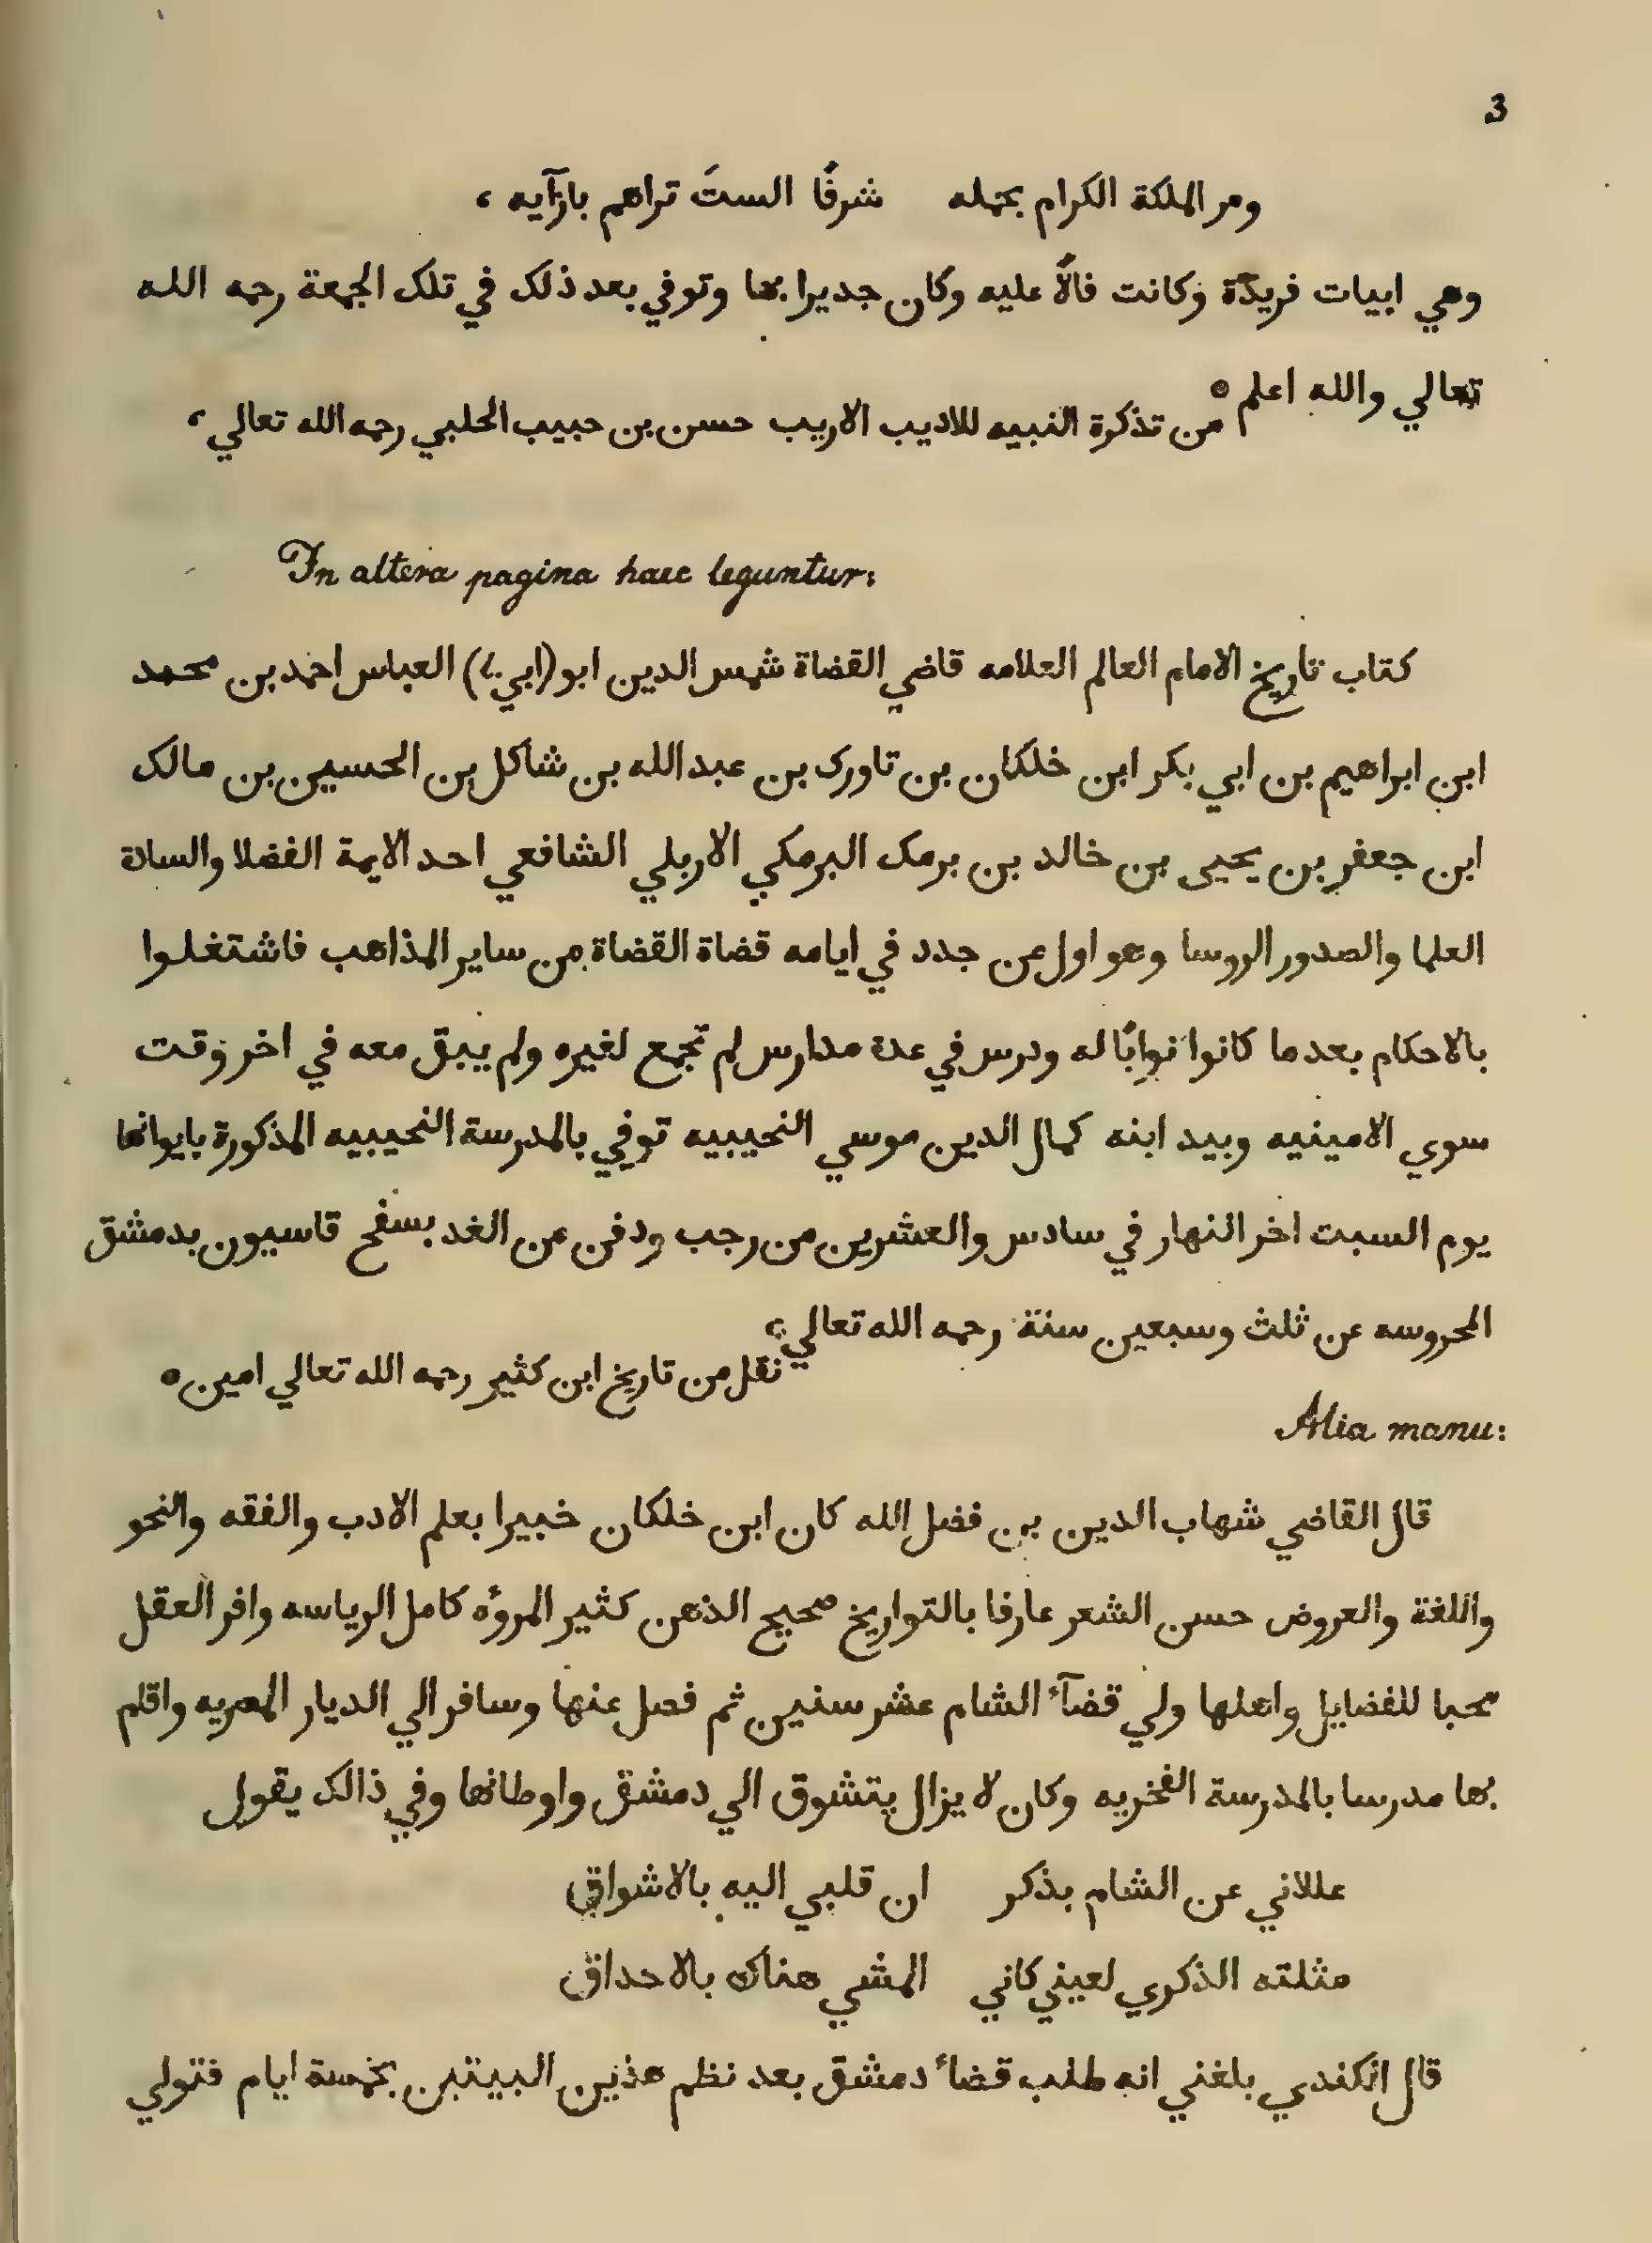 3
ومر الملكة الكرام بحمله شرفًا الستَ تراهم بازآيه ،
وهي ابيات فريدة وكانت فالاً عليه وكان جديرا بها وتوفي بعد ذلك في تلك الجمعة رحمه الله
تعالي والله اعلم
من تذكرة النبيه للاديب الاريب حسن بن حبيب الحلبي رحمه الله تعالي ،
In altera pagina haec leguntur:
كتاب تاريخ الامام العالم العلامه قاضي القضاة شمس الدين ابو (ابي .l) العباس احمد بن محمد
ابن ابراهيم بن ابي بكر ابن خلكان بن تاورك بن عبد الله بن شاكل بن الحسين بن مالك
ابن جعفر بن يحيى بن خالد بن برمك البرمكي الاربلي الشافعي احد الايمة الفضلا والسادة
العلما والصدور الروسا وهو اول من جدد في ايامه قضاة القضاة من ساير المذاهب فاشتغلوا
بالاحكام بعد ما كانوا نوابًا له ودرس في عدة مدارس لم تجمع لغيره ولم يبق معه في اخر وقت
سوي الامينيه وبيد ابنه كمال الدين موسي النحيبيه توفي بالمدرسة النحيبيه المذكورة بايوانها
يوم السبت اخر النهار في سادس والعشرين من رجب ودفن من الغد بسفح قاسيون بدمشق
المحروسه عن ثلث وسبعين سنة رحمه الله تعالي ،
نقل من تاريخ ابن كثير رحمه الله تعالي امين
Alia manu:
قال القاضي شهاب الدين بن فضل الله كان ابن خلكان خبيرا بعلم الادب والفقه والنحو
واللغة والعروض حسن الشعر عارفا بالتواريخ صحيح الذهن كثير المروؤه كامل الرياسه وافر العقل
محبا للفضايل واهلها ولي قضآء الشام عشر سنين ثم فصل عنها وسافر الي الديار المصريه واقام
بها مدرسا بالمدرسة الفخريه وكان لا يزال يتشوق الي دمشق واوطانها وفي ذالك يقول
عللاني عن الشام بذكر ان قلبي اليه بالاشواق
مثلته الذكري لعيني كاني المشي هناك بالاحداق
قال الكندي بلغني انه طلب قضاء دمشق بعد نظم هذين البيتين بخمسة ايام فتولي